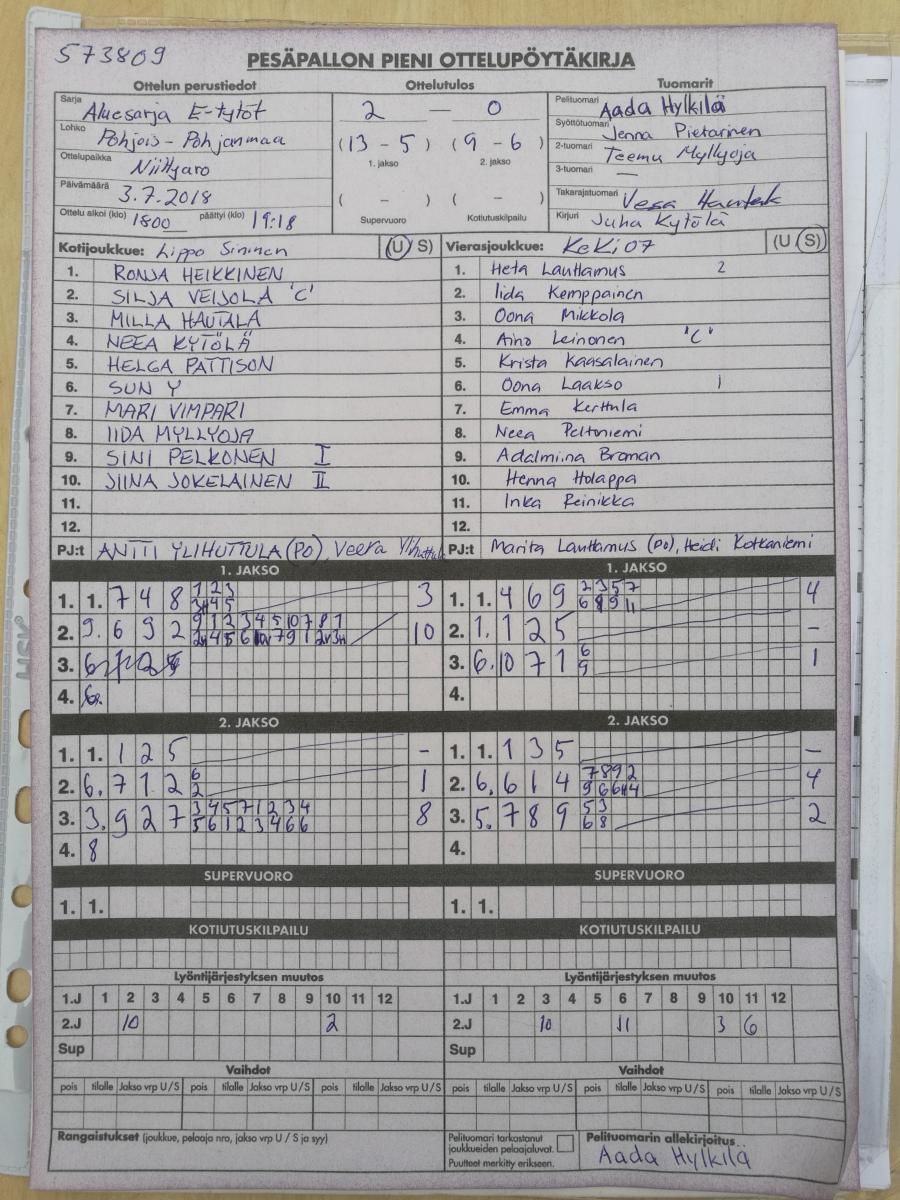 573809
PESÄPALLON PIENI OTTELUPÖYTÄKIRJA
Ottelun perustiedot Ottelutulos Tuomarit
Sarja Aluesarja E-tytöt
Lohko Pohjois-Pohjanmaa
Ottelupaikka Niittyaro
Päivämäärä 3.7.2018
Ottelu alkoi (klo) 1800 päättyi (klo) 19:18
2 — 0
(13 - 5) (9 - 6)
1. jakso 2. jakso
( - ) ( - )
Supervuoro Kotiutuskilpailu
Pelituomari Aada Hylkilä
Syöttötuomari Jenna Pietarinen
2-tuomari Teemu Myllyoja
3-tuomari —
Takarajatuomari Vesa
Kirjuri Juha Kytölä
Kotijoukkue: Lippo Sininen (U S)
1. RONJA HEIKKINEN
2. SILJA VEIJOLA 'C'
3. MILLA HAUTALA
4. NEEA KYTÖLÄ
5. HELGA PATTISON
6. SUN Y
7. MARI VIMPARI
8. IIDA MYLLYOJA
9. SINI PELKONEN I
10. JIINA JOKELAINEN II
11.
12.
PJ:t ANTTI YLIHUTTULA (PO), Veera Ylihuttula
Vierasjoukkue: KeKi 07 (U S)
1. Heta Lauttamus 2
2. Iida Kemppainen
3. Oona Mikkola
4. Aino Leinonen 'C'
5. Krista Kaasalainen
6. Oona Laakso 1
7. Emma Kerttula
8. Neea Peltoniemi
9. Adalmiina Broman
10. Henna Holappa
11. Inka Reinikka
12.
PJ:t Marita Lauttamus (PO), Heidi Kotkaniemi
1. JAKSO
1. 1. 7 4 8 1 2 3 3
2. 9. 6 9 2 9 1 2 3 4 5 10 7 8 1 10
3. 6
4. 6.
1. JAKSO
1. 1. 4 6 9 2 3 5 7 4
6 8 9 11
2. 1. 1 2 5 -
3. 6. 10 7 1 6 1
9
4.
2. JAKSO
1. 1. 1 2 5 -
2. 6. 7 1 2 6 1
2
3. 3. 9 2 7 3 4 5 7 1 2 3 4 8
5 6 1 2 3 4 6 6
4. 8
2. JAKSO
1. 1. 1 3 5 -
2. 6. 6 1 4 7 8 9 2 4
3. 5. 7 8 9 5 3 2
6 8
4.
SUPERVUORO
1. 1.
SUPERVUORO
1. 1.
KOTIUTUSKILPAILU
KOTIUTUSKILPAILU
Lyöntijärjestyksen muutos
1.J 1 2 3 4 5 6 7 8 9 10 11 12
2.J 10 2
Sup
Lyöntijärjestyksen muutos
1.J 1 2 3 4 5 6 7 8 9 10 11 12
2.J 10 11 3 6
Sup
Vaihdot
pois tilalle Jakso vrp U/S pois tilalle Jakso vrp U/S pois tilalle Jakso vrp U/S
Vaihdot
pois tilalle Jakso vrp U/S pois tilalle Jakso vrp U/S pois tilalle Jakso vrp U/S
Rangaistukset (joukkue, pelaaja nro, jakso vrp U / S ja syy)
Pelituomari tarkastanut
joukkueiden pelaajaluvat.
Puutteet merkitty erikseen.
Pelituomarin allekirjoitus
Aada Hylkilä